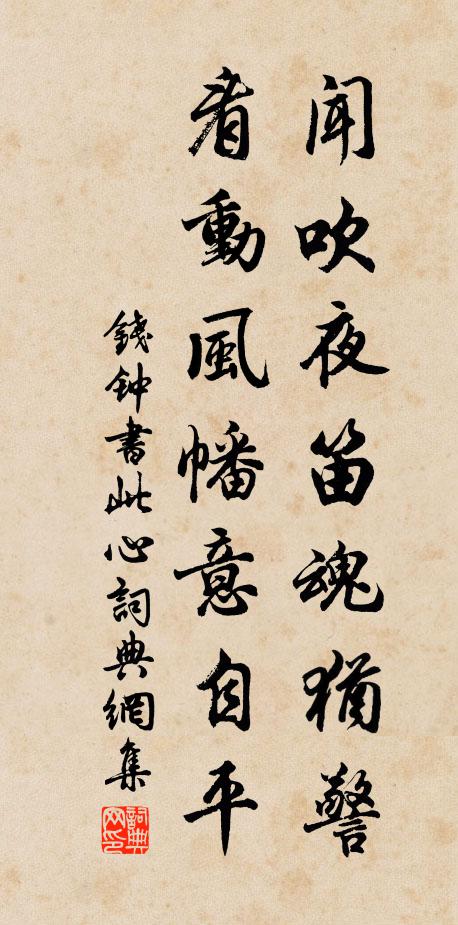 聞吹夜笛魂猶警
看動風幡意自平
錢鈡書此心詞典網集
詞典
网印